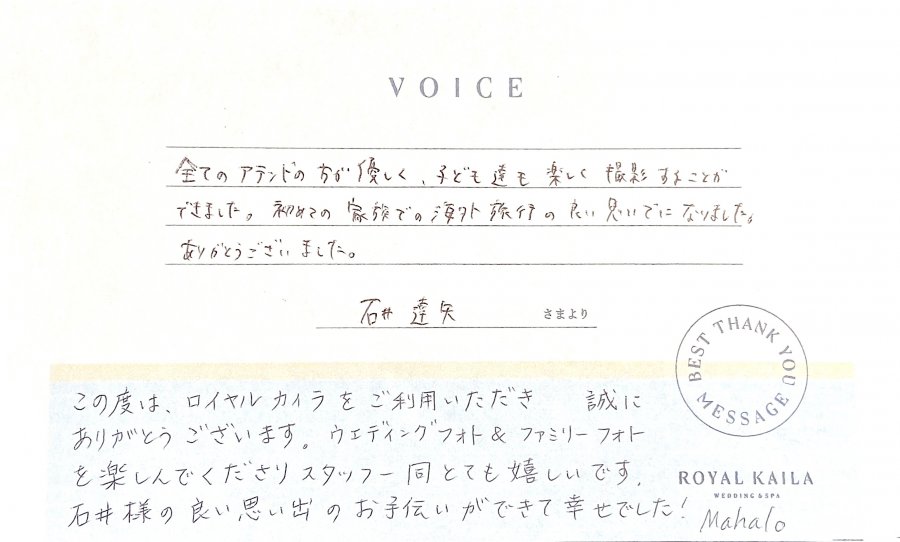 VOICE
全てのアテンドの方が優しく、子ども達も楽しく撮影することが
できました。初めての家族での海外旅行の良い思いでになりました。
ありがとうございました。
石井 達矢 さまより
BEST THANK YOU MESSAGE
この度は、ロイヤルカイラをご利用いただき 誠に
ありがとうございます。ウエディングフォト&ファミリーフォト
を楽しんでくださりスタッフ一同とても嬉しいです。
石井様の良い思い出のお手伝いができて幸せでした!
ROYAL KAILA
WEDDING & SPA
Mahalo